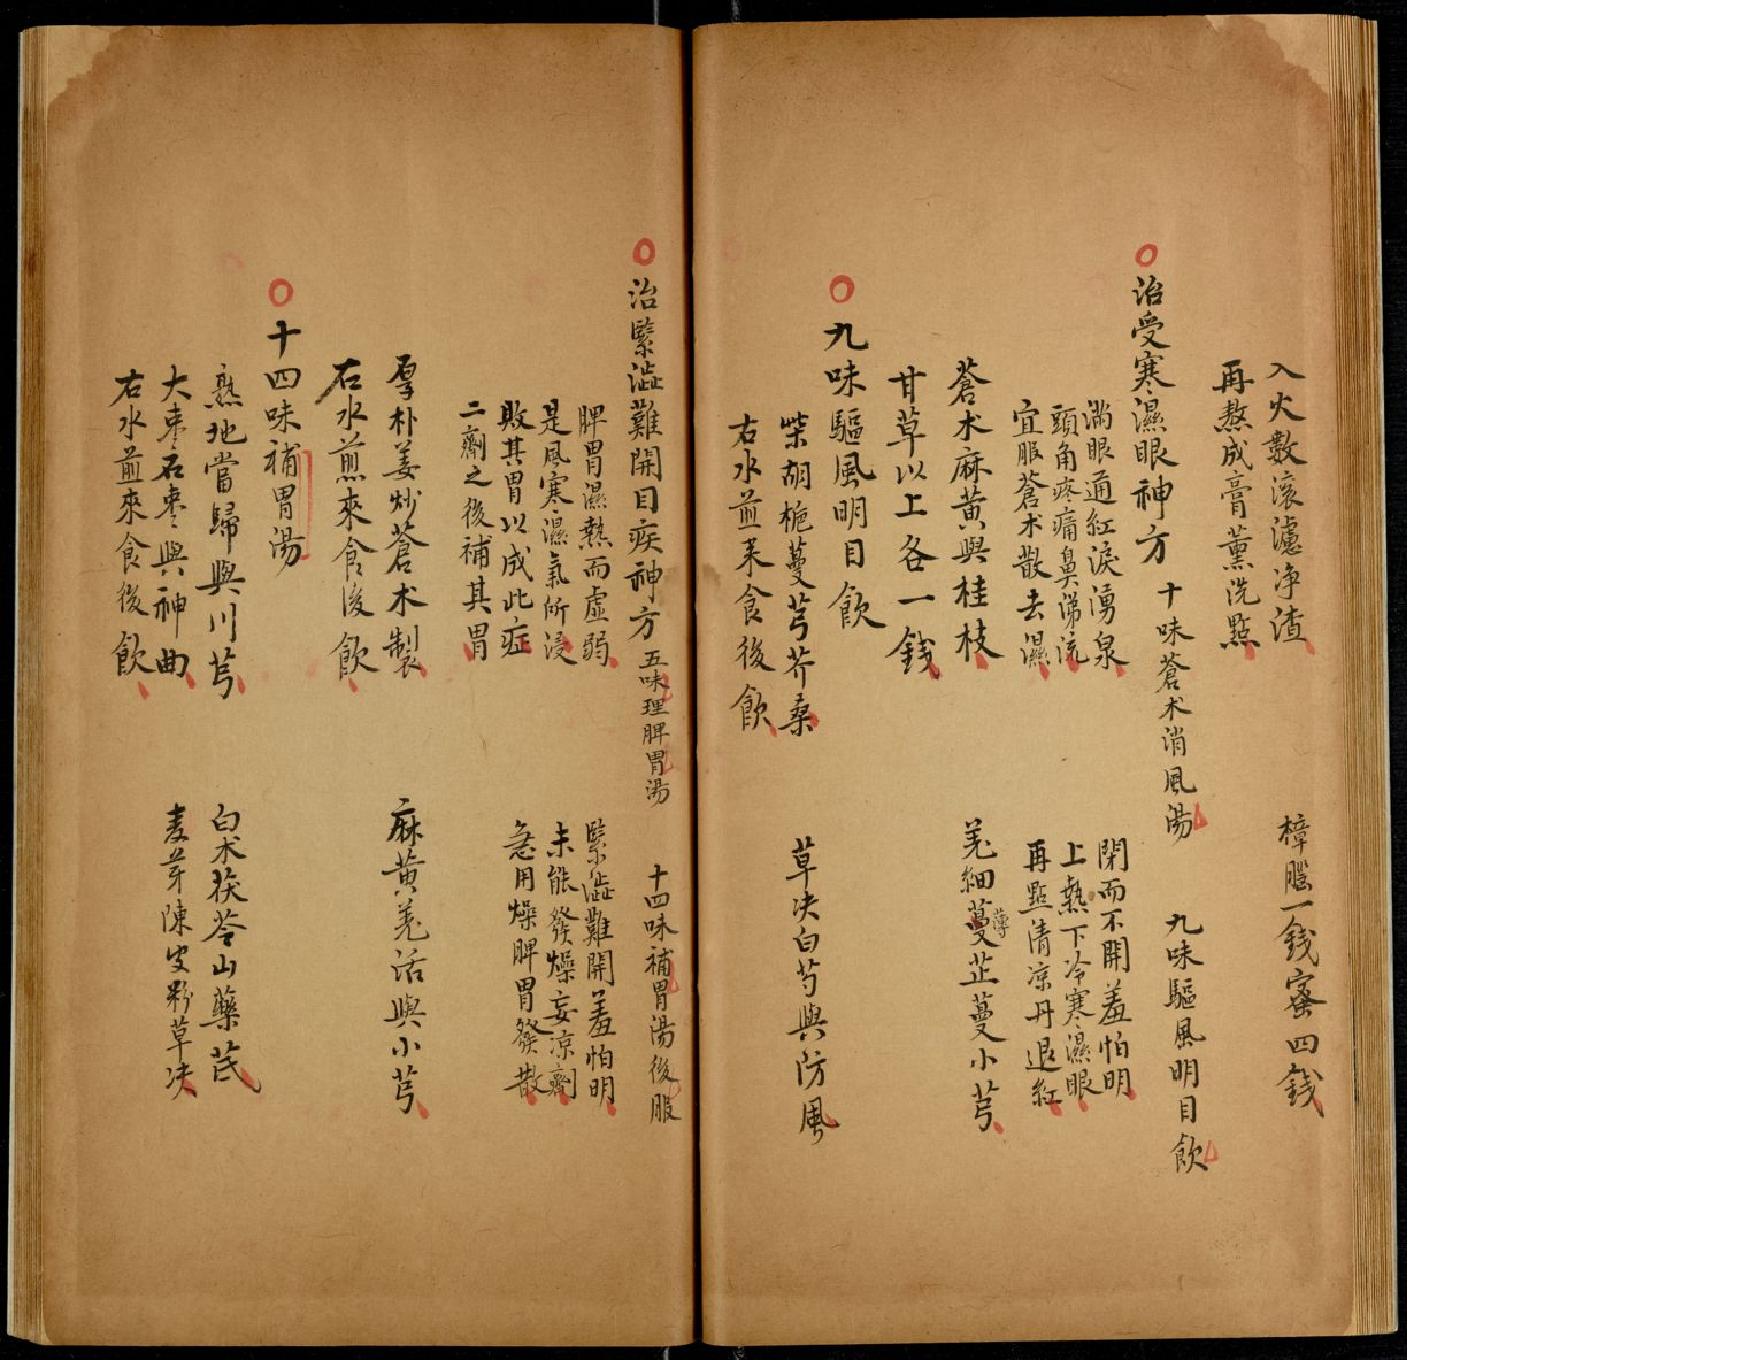 入火數滚濾净渣　樟腦一錢蜜四錢
再熬成膏薰洗點
治受寒濕眼神方　十味蒼术消風湯　九味驅風明目飲
滿眼通紅淚湧泉　閉而不開羞怕明
頭角疼痛鼻涕流　上熱下冷寒濕眼
宜服蒼术散去濕　再點清凉丹退紅
蒼术麻黄與桂枝　羌細蔓薄芷蔓小芎
甘草以上各一錢
九味驅風明目飲
柴胡梔蔓芎芥桑　草决白芍與防風
右水煎来食後飲
治緊澁難開目疾神方　五味理脾胃湯　十四味補胃湯後服
脾胃濕熱而虚弱　緊澁難開羞怕明
是風寒濕氣所浸　未能發燥妄凉劑
敗其胃以成此症　急用燥脾胃發散
二劑之後補其胃
厚朴姜炒蒼术製　麻黄羌活與小芎
石水煎來食後飲
十四味補胃湯
熟地當歸與川芎　白术茯苓山藥芪
大枣石枣與神曲　麦芽陳皮粉草决
右水煎來食後飲